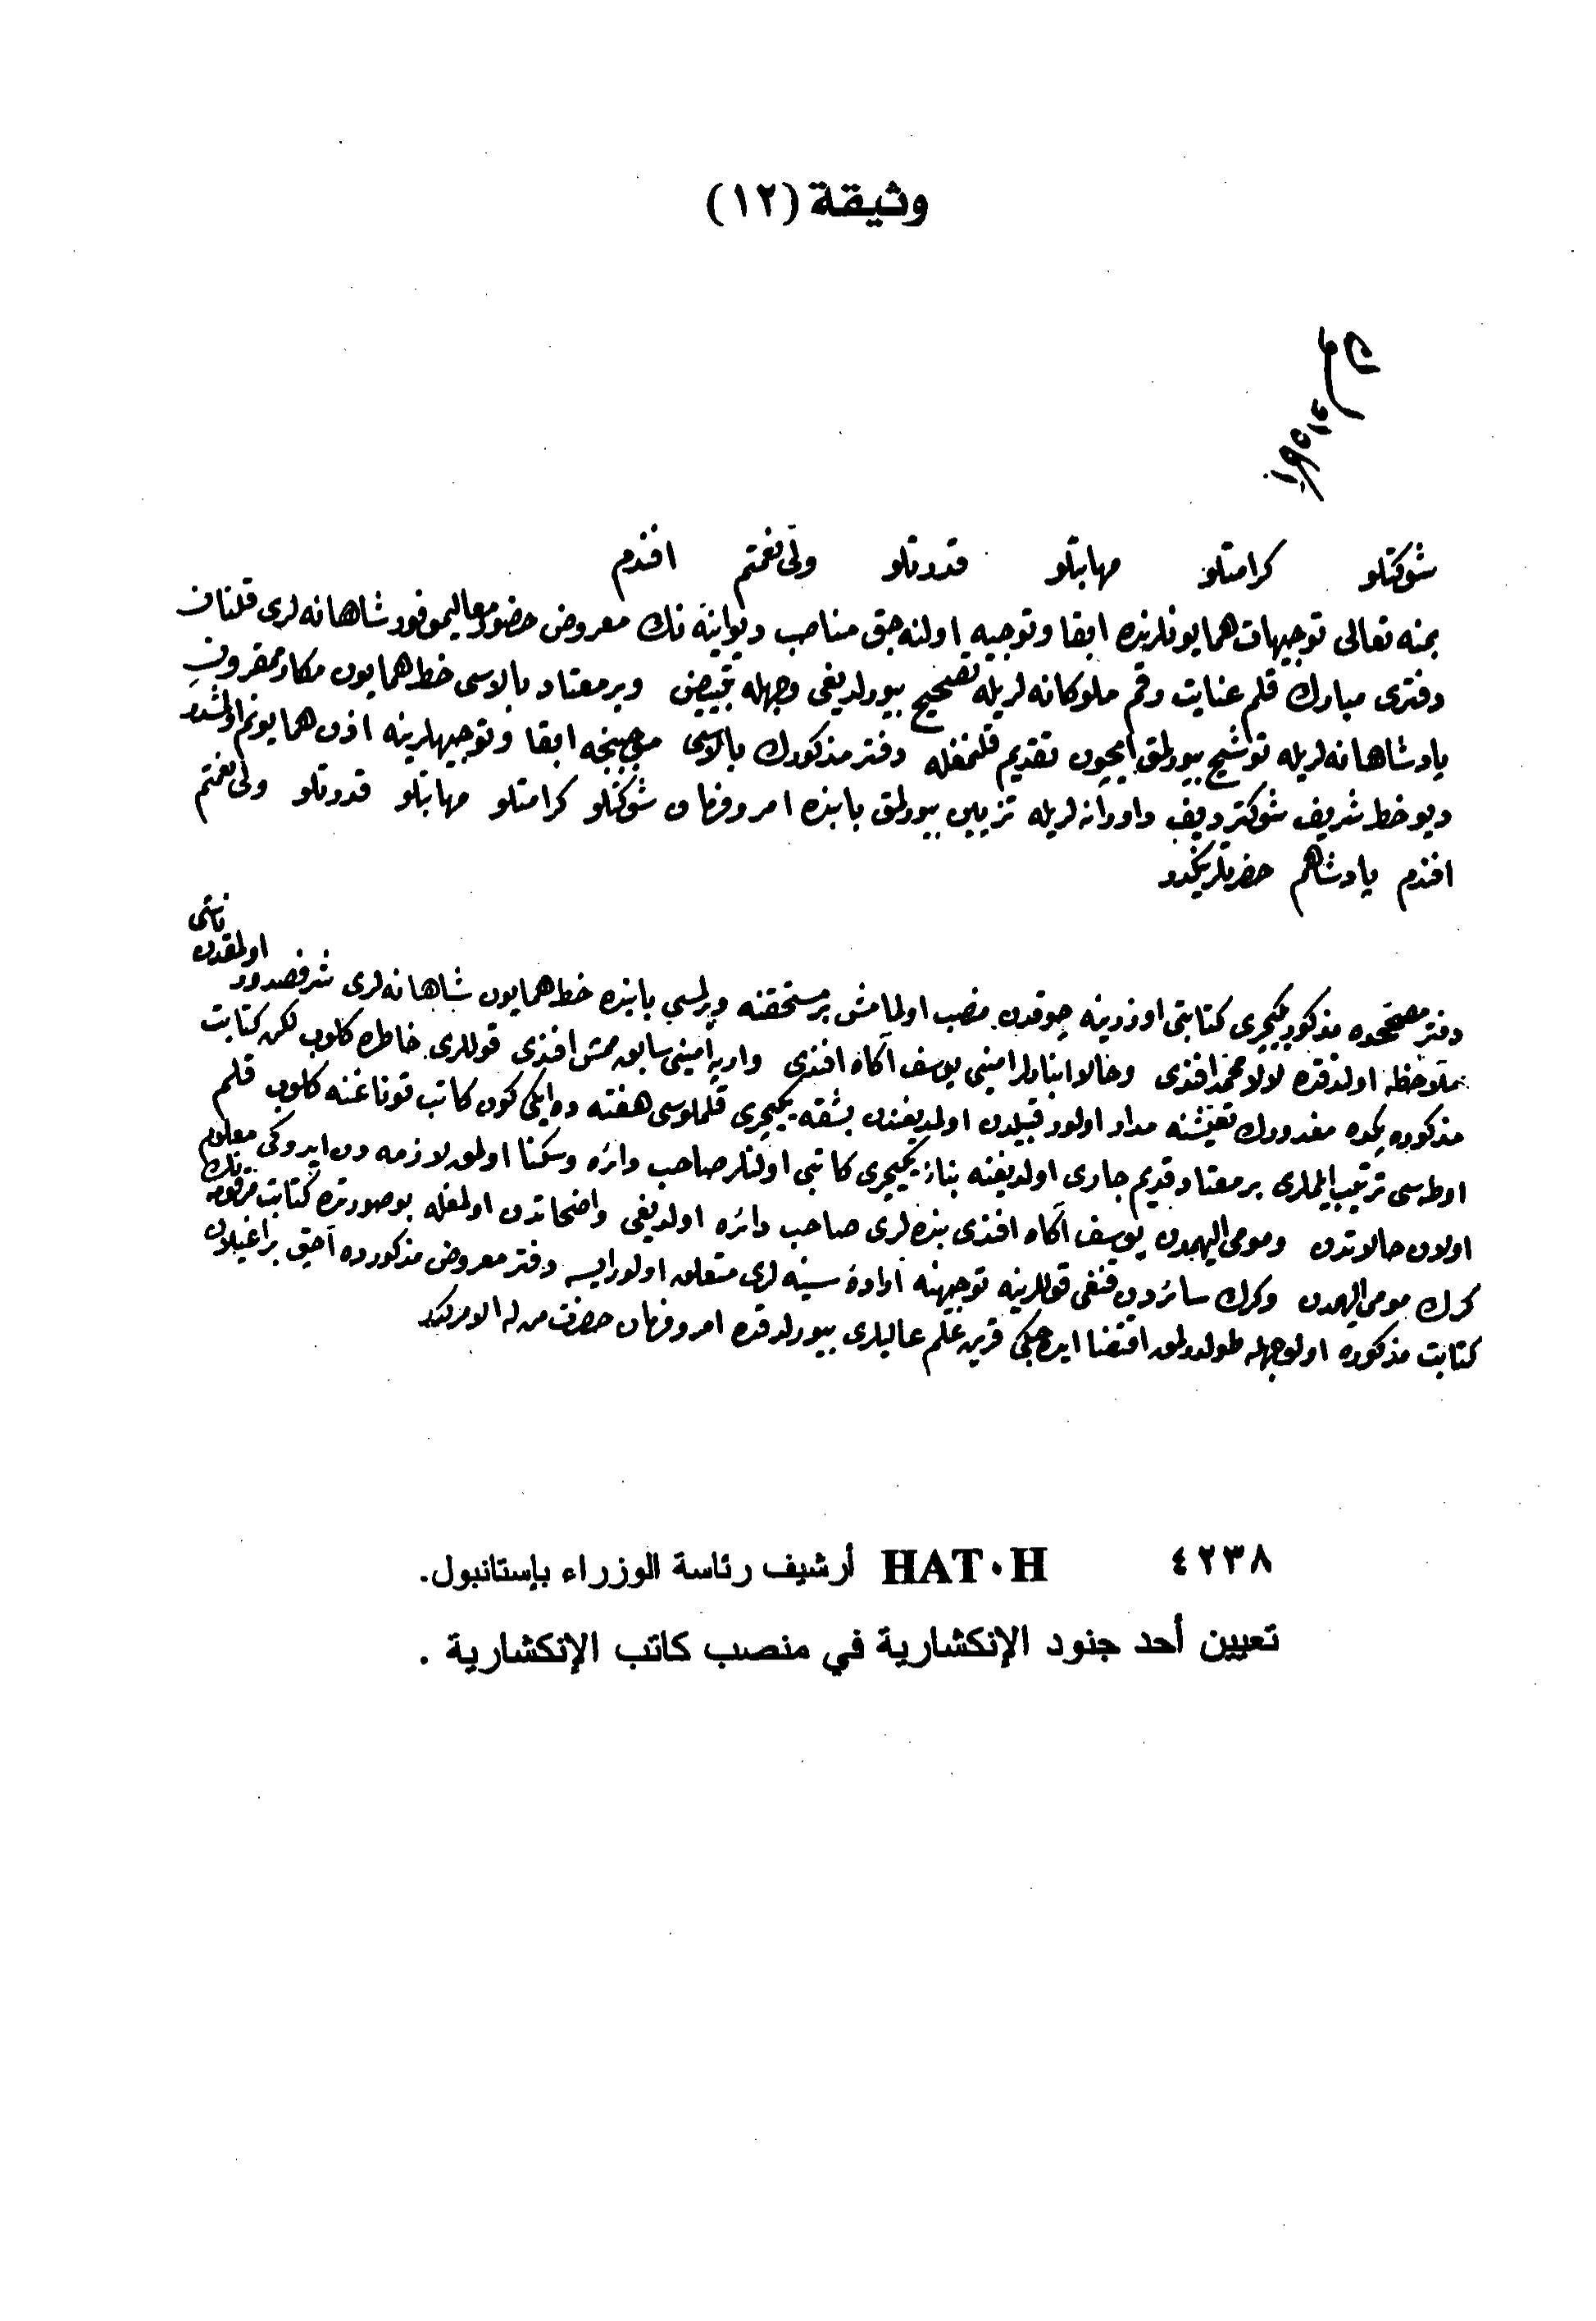 وثيقة (١٢)
شوكتلو كرامتلو مهابتلو قدرتلو ولى نعمتم افندم
بمنه تعالى توجيهات همايونلرنده ابقا وتوجيه اولنه جق مناصب ديوانيه نك معروض حضور معاليموفور شاهانه لرى قلنان
دفترى مبارك قلم عنايت رقم ملوكانه لريله تصحيح بيورلديغى وجهله تبييض وبر معتاد بالاسى خط همايون مكارمقرون
پادشاهانه لريله توشيح بيورلمق ايچون تقديم قلنمغله دفتر مذكورك بالاسى موجبنجه ابقا وتوجيهلرينه اذن همايونم اولمشدر
ديو خط شريف شوكترديف داورانه لريله تزيين بيورلمق بابنده امر وفرمان شوكتلو كرامتلو مهابتلو قدرتلو ولى نعمتم
افندم پادشاهم حضرتلرينكدر
دفتر مصححده مذكور يكيچرى كتابتى اوزرينه چوقدن منصب اولمامش بر مستحقنه ويرلمسى بابنده خط همايون شاهانه لرى شرفصدور اولمقدن ناشى
ملاحظه اولندقده لالا محمد افندى وحالا ابنادلر امينى يوسف آكاه افندى واربه امينى سابق ممش افندى قوللرى خاطره كلوب لكن كتابت
مذكوره يكده مغدورك تعيشنه مدار اولور قبيلدن اولمديغندن بشقه يكيچرى قلملوسى هفته ده ايكى كون كاتب قوناغنه كلوب قلم
اوطه سى ترتيب ايلملرى بر معتاد قديم جارى اولديغنه بناء يكيچرى كاتبى اولنلر صاحب دائره وسكنا اولمق لازمه دن ايدوكى معلوم
اولان حالاتدن ومومى اليهمدن يوسف آكاه افندى بنده لرى صاحب دائره اولديغى واضحاتدن اولمغله بو صورتده كتابت مرقومه نك
كرك مومى اليهمدن وكرك سائردن قنغى قوللرينه توجيهنه اراده سنيه لرى متعلق اولور ايسه دفتر معروض مذكورده آچيق براغيلان
كتابت مذكوره اولوجهله طولدرلمق اقتضا ايده جكى قرين علم عاليلرى بيورلدقده امر وفرمان حضرت من له الامركدر
٤٢٣٨ HAT.H أرشيف رئاسة الوزراء بإستانبول.
تعيين أحد جنود الإنكشارية في منصب كاتب الإنكشارية .